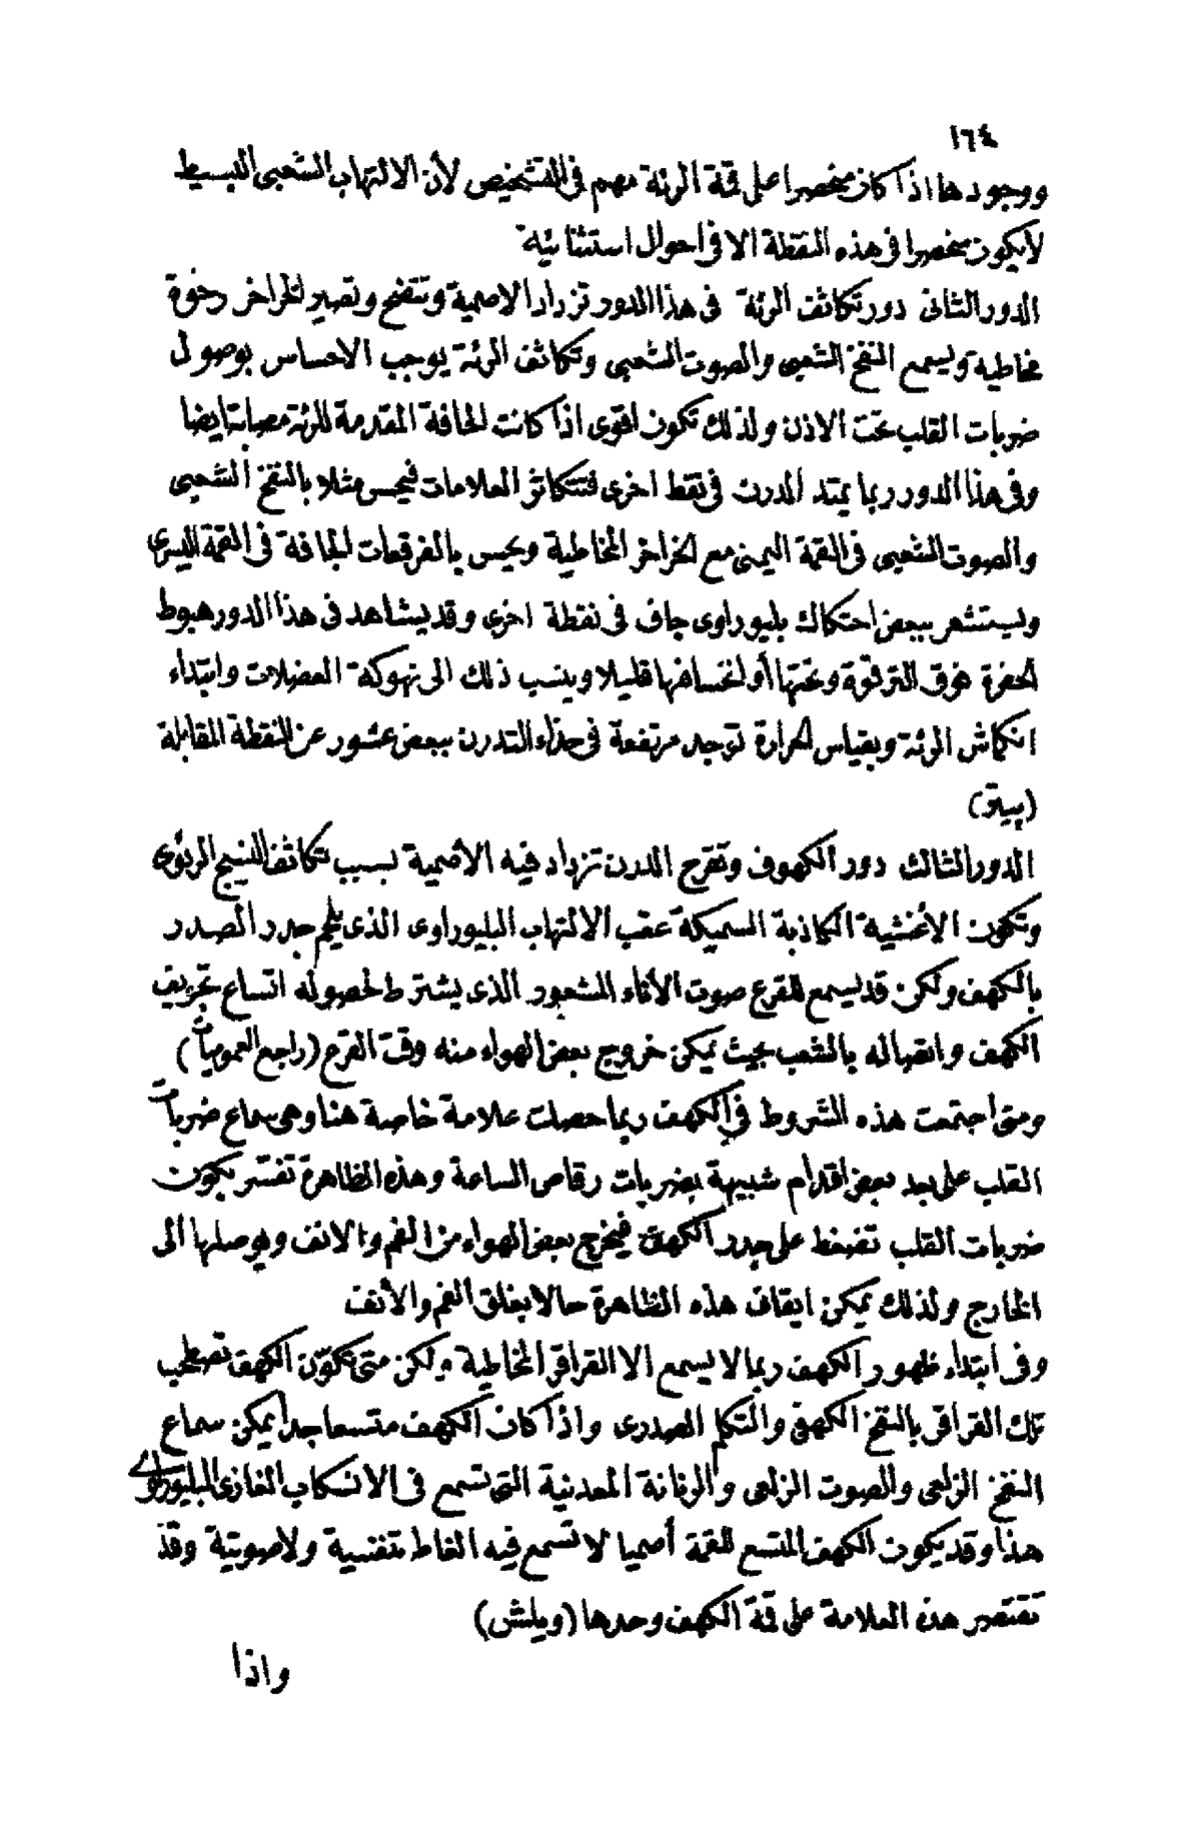 ١٦٤
ووجودها اذا كان منحصرا على قمة الرئة مهم فى التشخيص لأن الالتهاب الشعبى البسيط
لايكون منحصرا فى هذه النقطة الا فى احوال استثنائية
الدور الثانى دور تكاثف الرئة فى هذا الدور تزداد الاصمية وتتضح وتصير الخراخر رخوة
مخاطية ويسمع النفخ الشعبى والصوت الشعبى وتكاثف الرئة يوجب الاحساس بوصول
ضربات القلب تحت الاذن ولذلك تكون اقوى اذا كانت الحافة المقدمة للرئة مصابة ايضا
وفى هذا الدور ربما يمتد الدرن فى نقط اخرى فتتكاثر العلامات فيحس مثلا بالنفخ الشعبى
والصوت الشعبى فى القمة اليمنى مع الخراخر المخاطية ويحس بالفرقعات الجافة فى القمة اليسرى
ويستشعر ببعض احتكاك بليوراوى جاف فى نقطة اخرى وقد يشاهد فى هذا الدور هبوط
الحفرة فوق الترقوة وتحتها أو انخسافها قليلا وينسب ذلك الى نهوكة العضلات وابتداء
انكماش الرئة وبقياس الحرارة توجد مرتفعة فى حذاء التدرن ببعض عشور عن النقطة المقابلة
(بيتر)
الدور الثالث دور الكهوف وتقرح الدرن تزداد فيه الأصمية بسبب تكاثف النسيج الرئوى
وتكون الأغشية الكاذبة السميكة عقب الالتهاب البليوراوى الذى يلحم جدر الصدر
بالكهف ولكن قد يسمع للقرع صوت الأناء المشعور الذى يشترط لحصوله اتساع تجويف
الكهف واتصاله بالشعب بحيث يمكن خروج بعض الهواء منه وقت القرع (راجع العموميات)
ومتى اجتمعت هذه الشروط فى الكهف ربما حصلت علامة خاصة هنا وهى سماع ضربات
القلب على بعد بعض اقدام شبيهة بضربات رقاص الساعة وهذه الظاهرة تفسر بكون
ضربات القلب تضغط على جدر الكهف فيخرج بعض الهواء من الفم والانف ويوصلها الى
الخارج ولذلك يمكن ايقاف هذه الظاهرة حالا بغلق الفم والأنف
وفى ابتداء ظهور الكهف ربما لا يسمع الا القراقر المخاطية ولكن متى تكوّن الكهف تصطحب
تلك القراقر بالنفخ الكهفى والتكلم الصدرى واذا كان الكهف متسعا جدا يمكن سماع
النفخ الزلعى والصوت الزلعى والرنانة المعدنية التى تسمع فى الانسكاب الغازى البليوراوى
هذا وقد يكون الكهف المتسع للقمة أصميا لا تسمع فيه الغاط تنفسية ولا صوتية وقد
تقتصر هذه العلامة على قمة الكهف وحدها (ويلش)
واذا